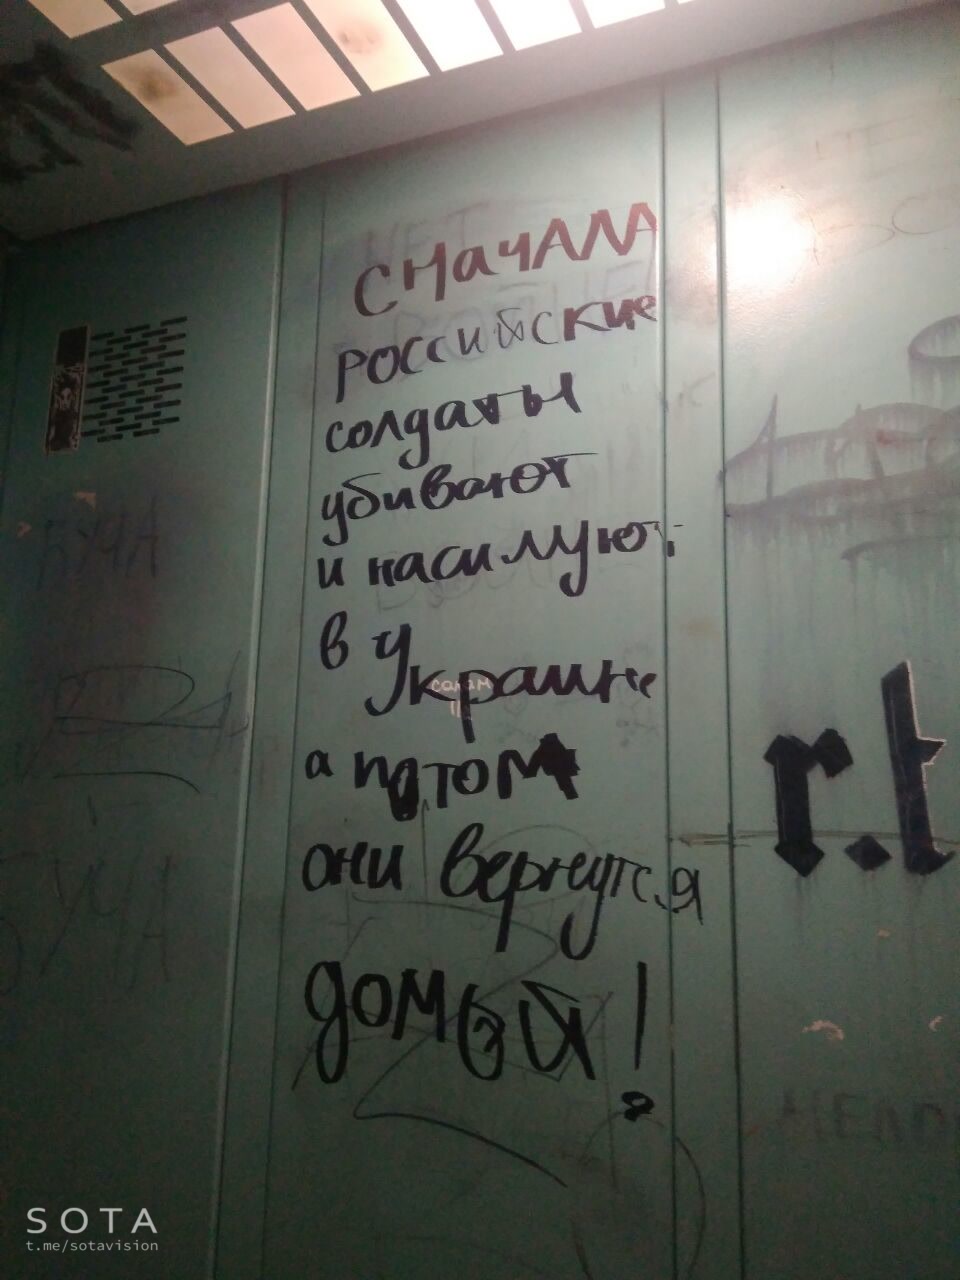 сначала
российские
солдаты
убивают
и насилуют
в Украине
а потом
они вернутся
домой!
салам
БУЧА
БУЧА
r.t
SOTA
t.me/sotavision